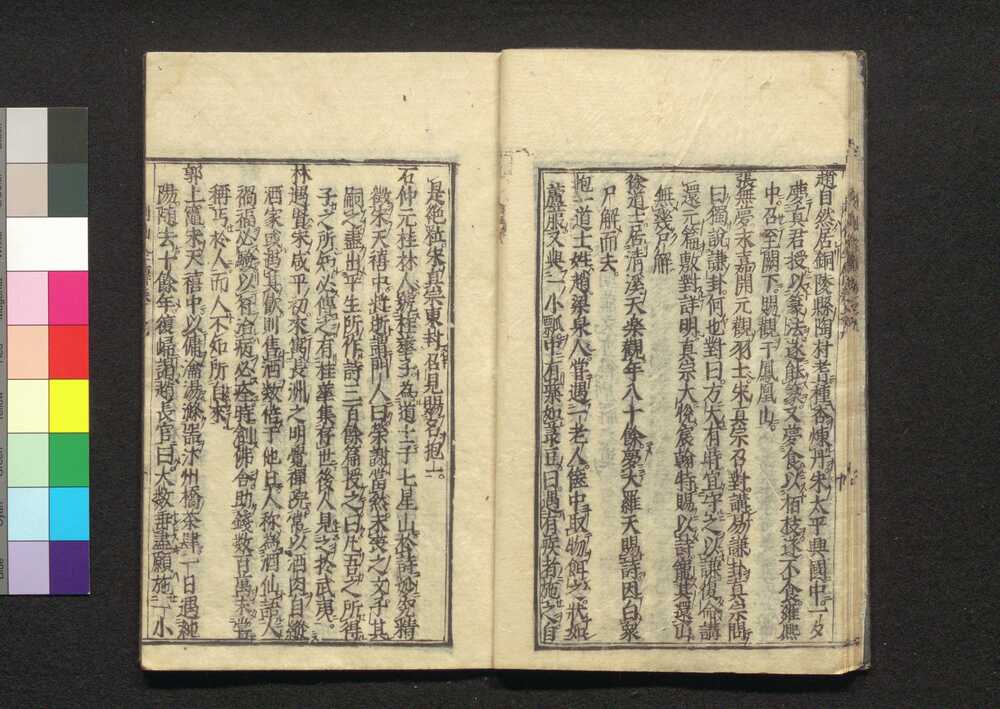 趙自然居銅陵縣陶村者種杏煉丹宋太平興國中一夕
慶真君授以篆法遂能篆又夢食以栢枝遂不食雍熙
中召至闕下賜觀于鳳凰山
張無夢永嘉開元觀羽士宋真宗召對講易謙卦真宗問
曰獨說謙卦何也對曰方大有時宜守之以謙復命講
還元篇敷對詳明真宗大悅宸翰特賜以詩寵其還山
無幾尸解
徐道士居清溪天樂觀年八十餘夢大羅天賜詩因白衆
尸解而去
抱一道士姓趙梁泉人嘗遇一老人篋中取物餌其狀如
蘆菔又與一小瓢中有藥如菉豆曰遇有疾者施之自
是絶粒宋真宗東封召見賜名抱一
石仲元桂林人號桂華子為道士于七星山於詩妙究精
微宋天禧中將逝謂門人曰榮謝當然未喪之文乎其
嗣之盡出平生所作詩三百餘篇授之曰凡吾之所得
子之所知必傳之有桂華集存世後人見之於武夷
林遇賢宋咸平初來寓長洲之明覺禪院常以酒肉自縱
酒家或遇其飲則售酒數倍于他日人称為酒仙語人
禍福必驗以符治病必痊時創佛舍助錢數百萬未嘗
稱丐於人而人不知所自來
郭上竈宋天禧中以傭瀹湯滌器汴州橋茶肆一日遇純
陽随去十餘年復歸謂趙長官曰大数垂盡願施一小